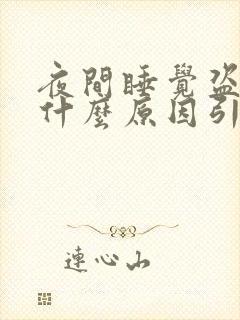 夜間睡覺盜
什麼原因引
連心山